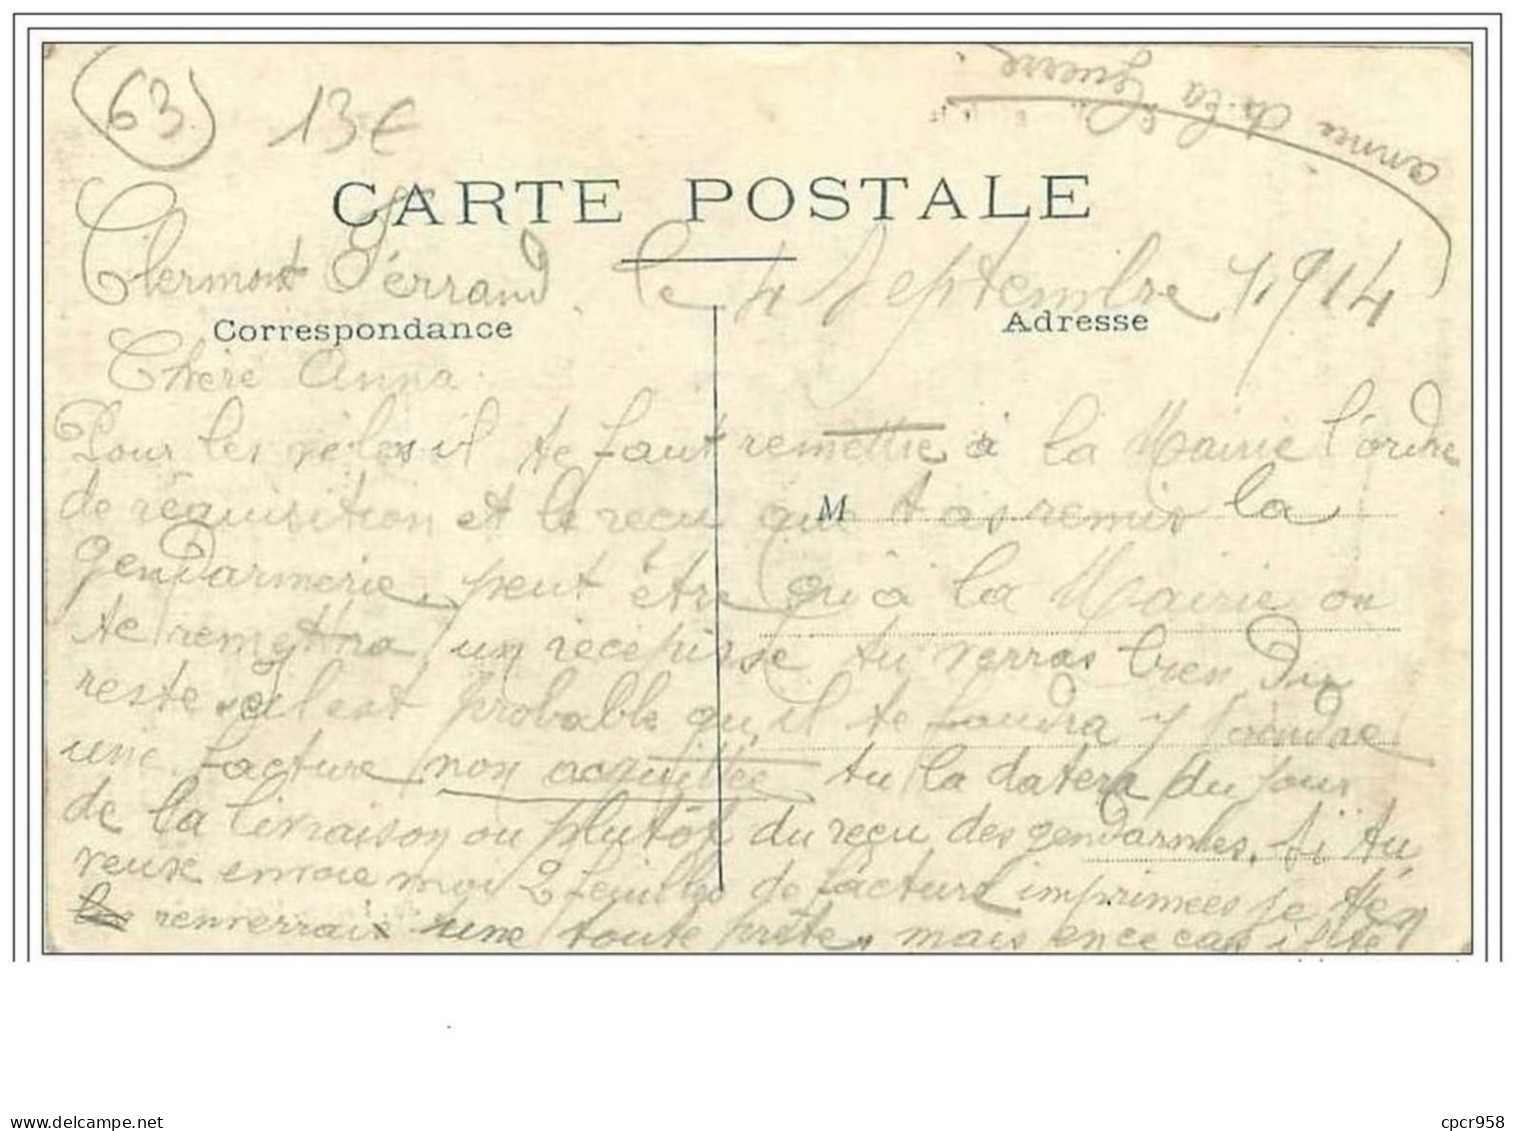 63
13€
année de la Guerre.
CARTE POSTALE
Clermont Férrand. le 4 Septembre 1914
Correspondance
Adresse
Chère Anna.
Pour les vélos il te faut remettre à la Mairie l'ordre
de réquisition et le reçu que t as remis la
M
gendarmerie, peut être qu'à la Mairie on
te remettra un récépissé tu verras bien du
reste, il est probable qu'il te faudra y joindre
une facture non acquittée tu la datera du jour
de la livraison ou plutôt du reçu des gendarmes. Si tu
veux envoie moi 2 feuilles de facture imprimées je t'en
renverrais une toute prête, mais en ce cas il te
delcampe.net
cpcr958